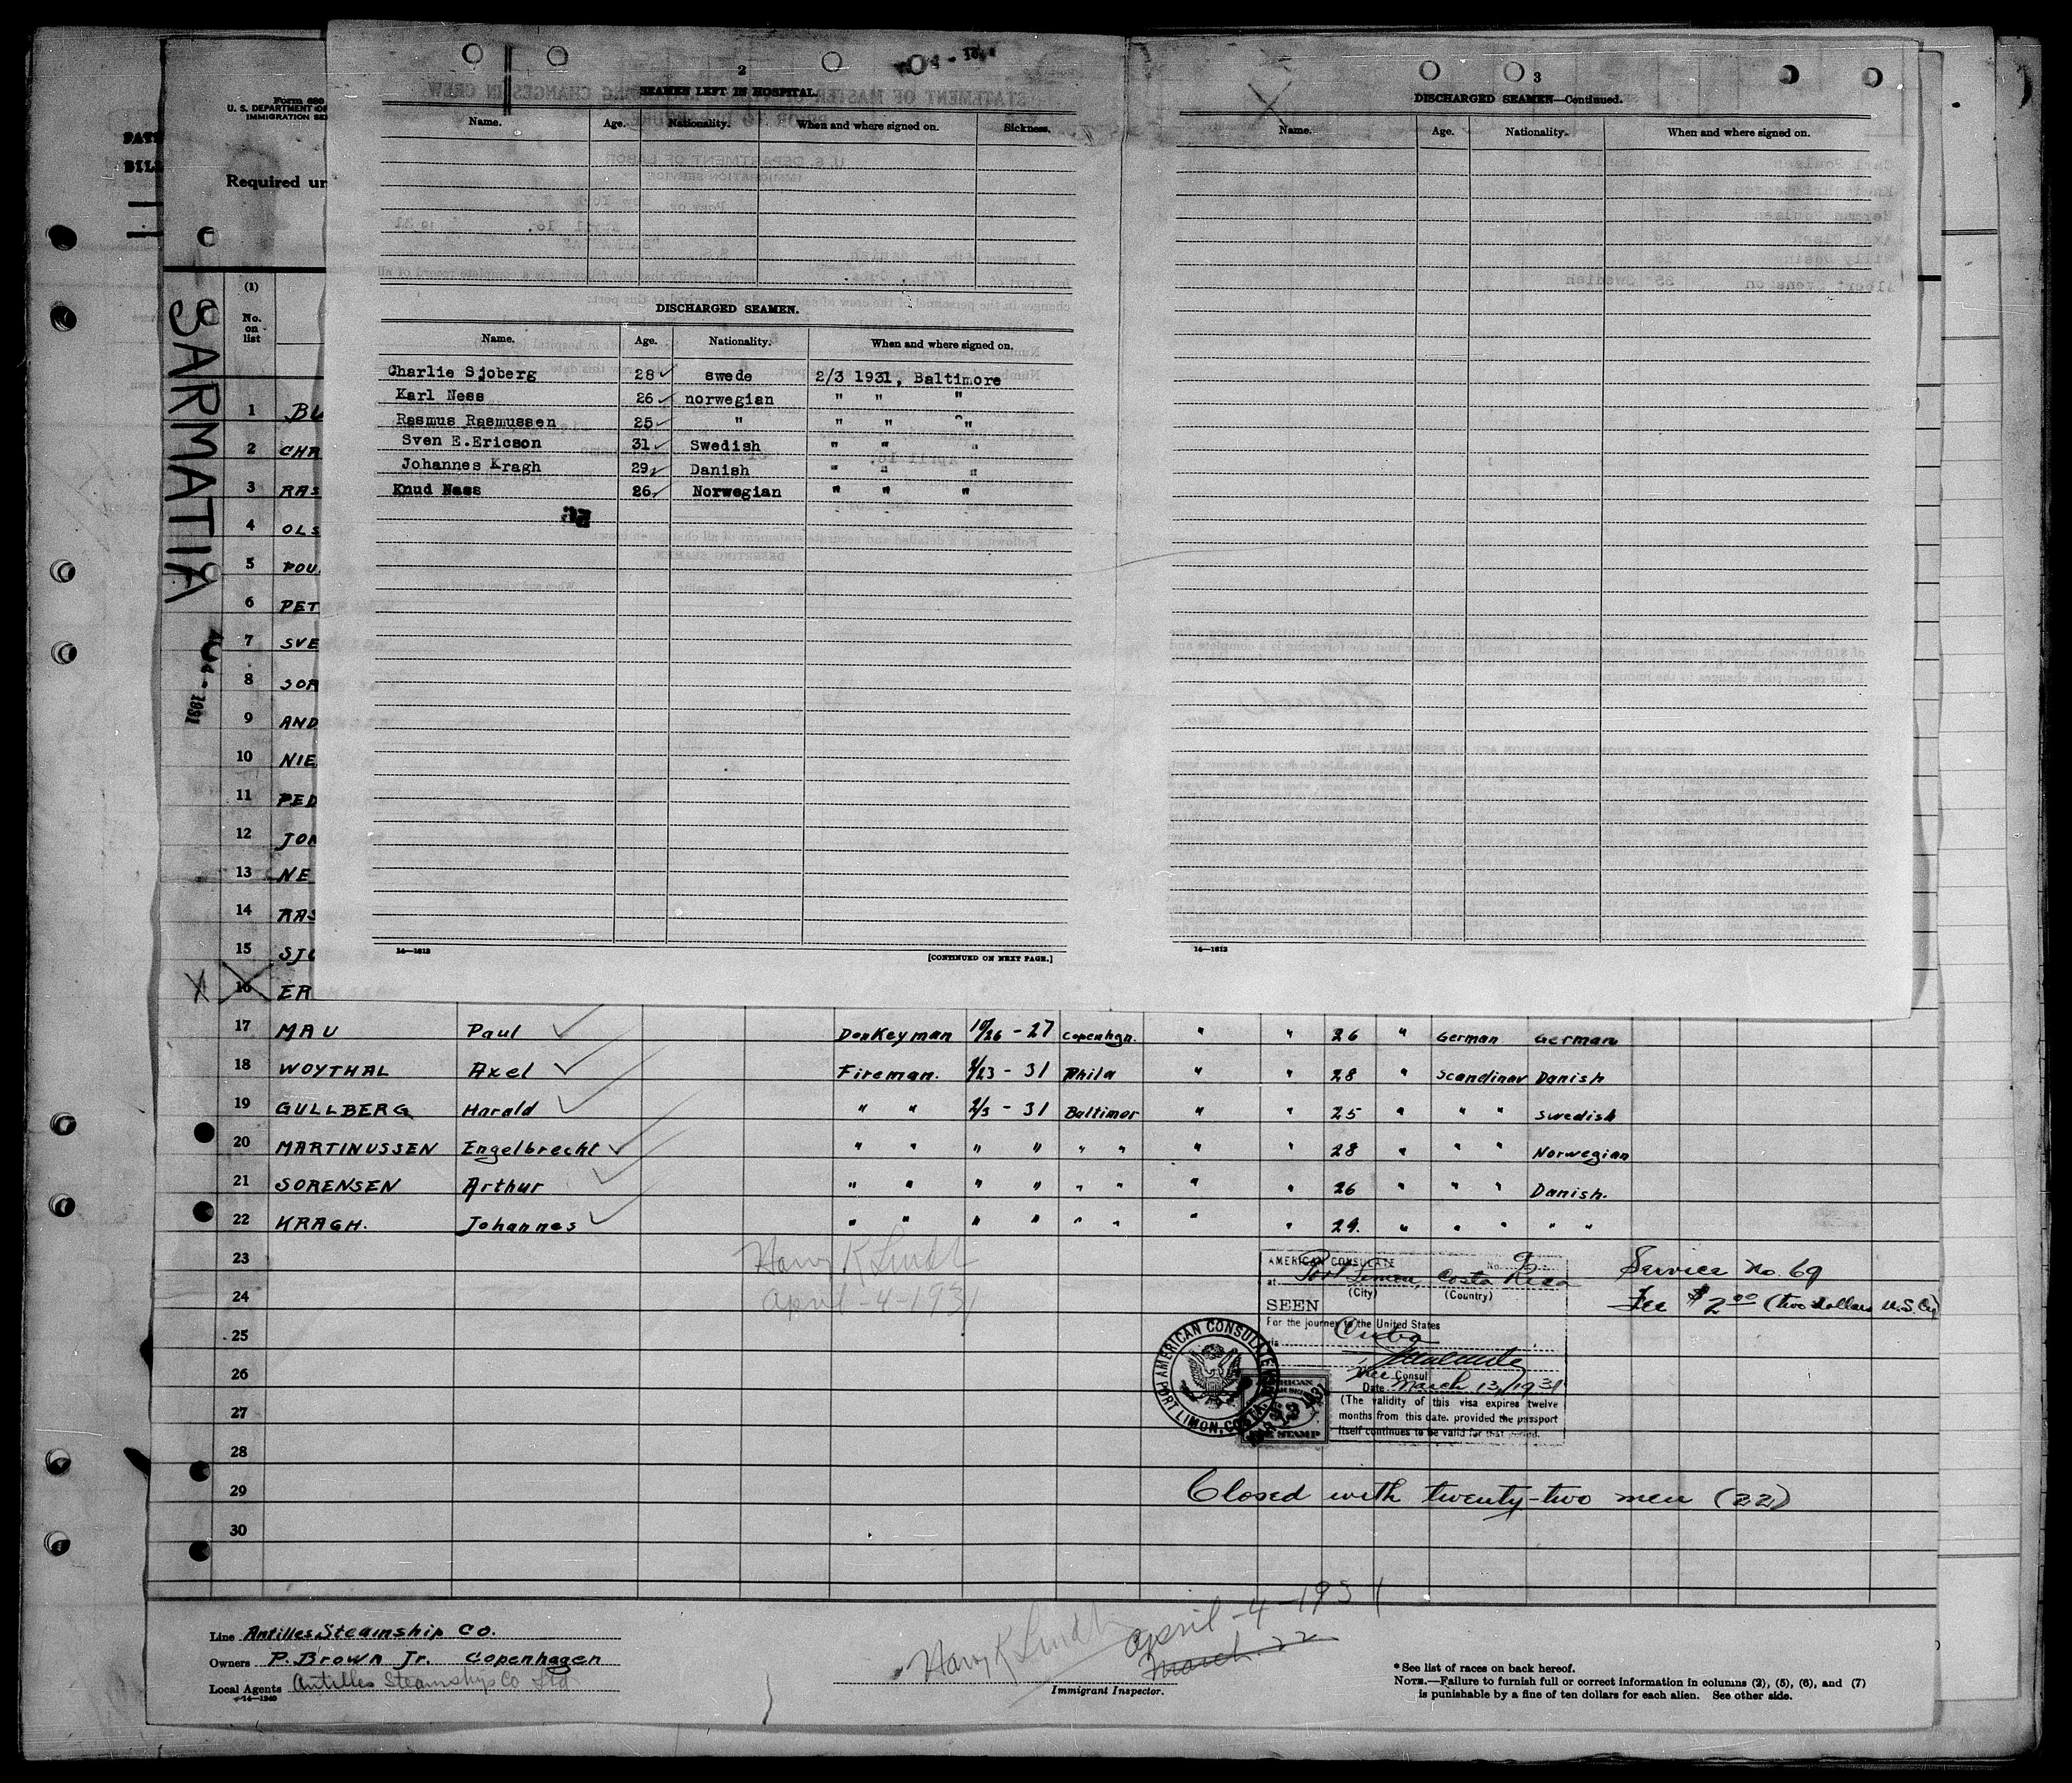 Form 680
U. S. DEPARTMENT OF
IMMIGRATION SER
Required un
SARMATIA
(1)
No.
on
list
1 BU
2 CHR
3 RAS
4 OLS
5 POU
6 PET
7 SVE
8 SOR
9 AND
10 NIE
11 PED
12 JOR
13 NE
14 RAS
15 SJO
16 ER
2
SEAMEN LEFT IN HOSPITAL.
Name. Age. Nationality. When and where signed on. Sickness.
DISCHARGED SEAMEN.
Name. Age. Nationality. When and where signed on.
Charlie Sjoberg 28 swede 2/3 1931, Baltimore
Karl Ness 26 norwegian " " "
Rasmus Rasmussen 25 " " " "
Sven E.Ericson 31 Swedish " " "
Johannes Kragh 29 Danish " " "
Knud Ness 26 Norwegian " " "
14—1613 [CONTINUED ON NEXT PAGE.]
3
DISCHARGED SEAMEN—Continued.
Name. Age. Nationality. When and where signed on.
14—1613
17 MAU Paul Donkeyman 10/26 - 27 Copenhgn. " " 26 " German German
18 WOYTHAL Axel Fireman. 2/23 - 31 Phila " " 28 " Scandinav Danish
19 GULLBERG Harald " " 2/3 - 31 Baltimor " " 25 " " " Swedish
20 MARTINUSSEN Engelbrecht " " " " " " " " 28 " " " Norwegian
21 SORENSEN Arthur " " " " " " " " 26 " " " Danish.
22 KRAGH. Johannes " " " " " " " " 29. " " " " "
23
24
25
26
27
28
29
30
Harry K Lindt
April-4-1931
AMERICAN CONSULATE No. 9
at Port Limon, Costa Rica
(City) (Country)
SEEN
For the journey to the United States
via Cuba
Vice Consul
Date March 13, 1931
(The validity of this visa expires twelve
months from this date, provided the passport
itself continues to be valid for that period.
Service No. 69
Fee $2.00 (two dollars U.S. Cy)
AMERICAN CONSULATE
PORT LIMON, COSTA RICA
FEE STAMP
Closed with twenty-two men (22)
Line Antilles Steamship Co.
Owners P. Brown Jr. Copenhagen
Local Agents Antilles Steamship Co Ltd
14—1240
Harry K Lindt April-4-1931
March 22
Immigrant Inspector.
* See list of races on back hereof.
NOTE.—Failure to furnish full or correct information in columns (2), (5), (6), and (7)
is punishable by a fine of ten dollars for each alien. See other side.